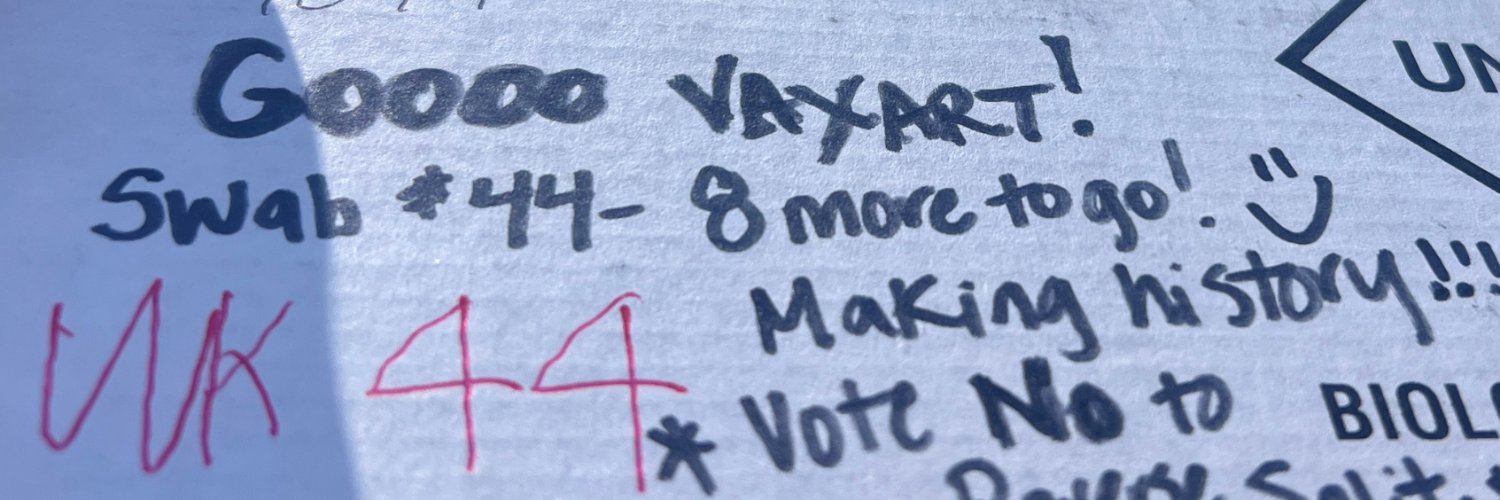 Goooo VAXART!
UN
Swab #44- 8 more to go! ")
Making history!!!
WK 44
* Vote No to
BIOL
Split